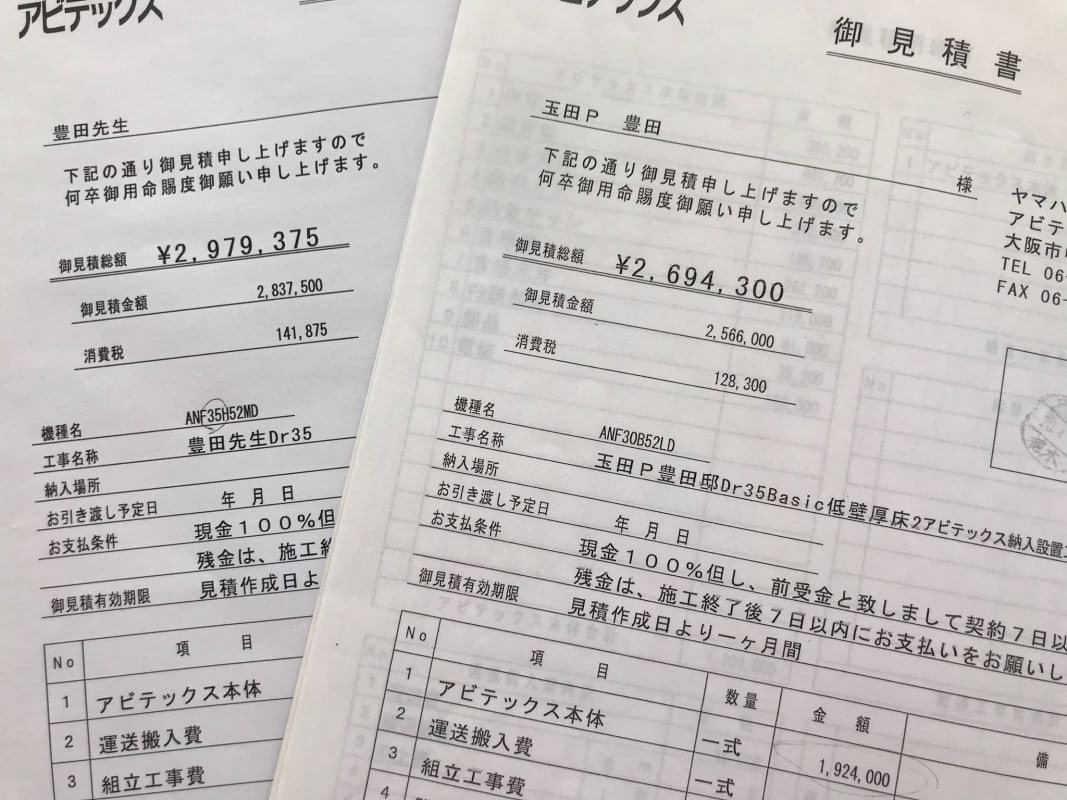 アビテックス
豊田先生
下記の通り御見積申し上げますので
何卒御用命賜度御願い申し上げます。
御見積総額 ¥2,979,375
御見積金額 2,837,500
消費税 141,875
機種名 ANF35H52MD
工事名称 豊田先生Dr35
納入場所
お引き渡し予定日 年 月 日
お支払条件 現金100%但
残金は、施工終
御見積有効期限 見積作成日よ
No 項 目
1 アビテックス本体
2 運送搬入費
3 組立工事費
御 見 積 書
玉田P 豊田 様
下記の通り御見積申し上げますので
何卒御用命賜度御願い申し上げます。
ヤマハ
アビテ
大阪市
TEL 06-
FAX 06-
御見積総額 ¥2,694,300
御見積金額 2,566,000
消費税 128,300
機種名 ANF30B52LD
工事名称 玉田P豊田邸Dr35Basic低壁厚床2アビテックス納入設置工
納入場所
お引き渡し予定日 年 月 日
お支払条件 現金100%但し、前受金と致しまして契約7日以
残金は、施工終了後7日以内にお支払いをお願いし
御見積有効期限 見積作成日より一ヶ月間
No 項 目 数量 金 額 備
1 アビテックス本体 一式 1,924,000
2 運送搬入費 一式
3 組立工事費
4